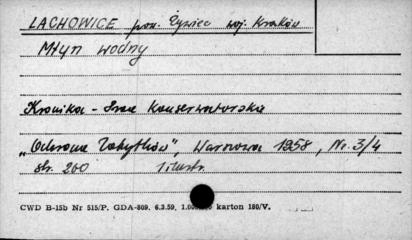 LACHOWICE pow. Żywiec woj. Kraków
Młyn wodny
Kronika - Prace Konserwatorskie
„Ochrona Zabytków", Warszawa 1958, Nr. 3/4
str. 260 1 ilustr.
CWD B-15b Nr 515/P. GDA-809. 6.3.59, 1.000.000 karton 180/V.